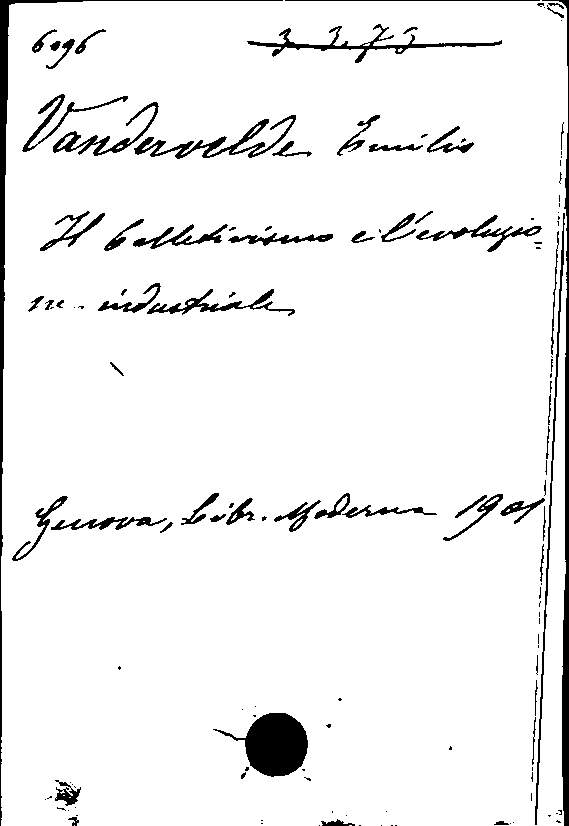 6096 3.3.73
Vandervelde Emilio
Il Collettivismo e l'evoluzio=
ne industriale
Genova, Libr. Moderna 1901